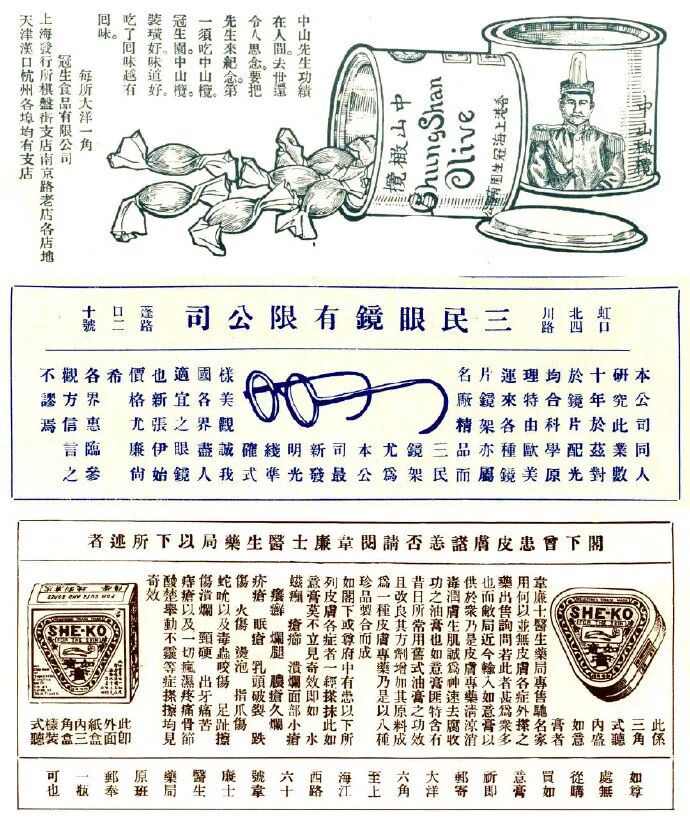 中山先生功績
在人間。去世還
令人思念。要把
先生來紀念。第
一須吃中山欖。
冠生園。中山欖。
裝璜好。味道好。
吃了回味越有
回味。
每所大洋一角
冠生食品有限公司
上海發行所棋盤街支店南京路老店各店地
天津漢口杭州各埠均有支店
中山橄欖
Chung Shan
Olive
香港上海冠生園有限
中山橄欖
虹口
北四
川路
三民眼鏡有限公司
蓬路
口二
十號
本公司同人
研究此業數
十年於茲對
於鏡片配光
均合科學原
理特由歐美
運來各種鏡
片鏡架亦屬
名廠精品而
三民
鏡架
尤為
本公
司最
新發
明光
綫準
確式
樣美觀誠我
國各界盡人
適宜之眼鏡
也新張伊始
價格尤廉尚
希
各界惠臨參
觀方信言之
不謬焉
閣下曾患皮膚諮恙否請閱韋廉士醫生藥局以下所述者
SHE-KO
(FOR THE SKIN)
如意膏
此係
三角
式聽
內盛
如意
膏者
韋廉士醫生藥局專售馳名家
用何以並無皮膚各症外搽之
藥出售詢問若此者甚為衆多
也而敝局近今輸入如意膏以
供於衆乃是皮膚專藥清涼消
毒潤膚生肌誠為神速去腐收
功之油膏也如意膏匪特含有
昔日所常用舊式油膏之功效
且改良其方劑增加其原料成
為一種皮膚專藥乃是以八種
珍品製合而成
如閣下或尊府中有患以下所
列皮膚各症者一經搽抹此如
意膏莫不立見奇效即如 水
瘡癬 爛腿 膿瘡久爛
疥瘡 眼瘡 乳頭破裂 跌
傷 火傷 燙泡 指爪傷
蛇吮以及毒蟲咬傷 足趾擦
傷潰爛 頸硬 出牙痛苦
痔瘡以及一切瘋濕疼痛骨節
酸楚舉動不靈等症搽擦均見
奇效
FOR CUTS AND SORES
SHE-KO
(FOR THE SKIN)
如意膏
此即
外面
紙盒
內三
角盒
樣裝
式聽
如尊
處無
從購
買如
意膏
祈即
郵寄
大洋
六角
至上
海江
西路
六十
號韋
廉士
醫生
藥局
原班
郵奉
一瓶
可也